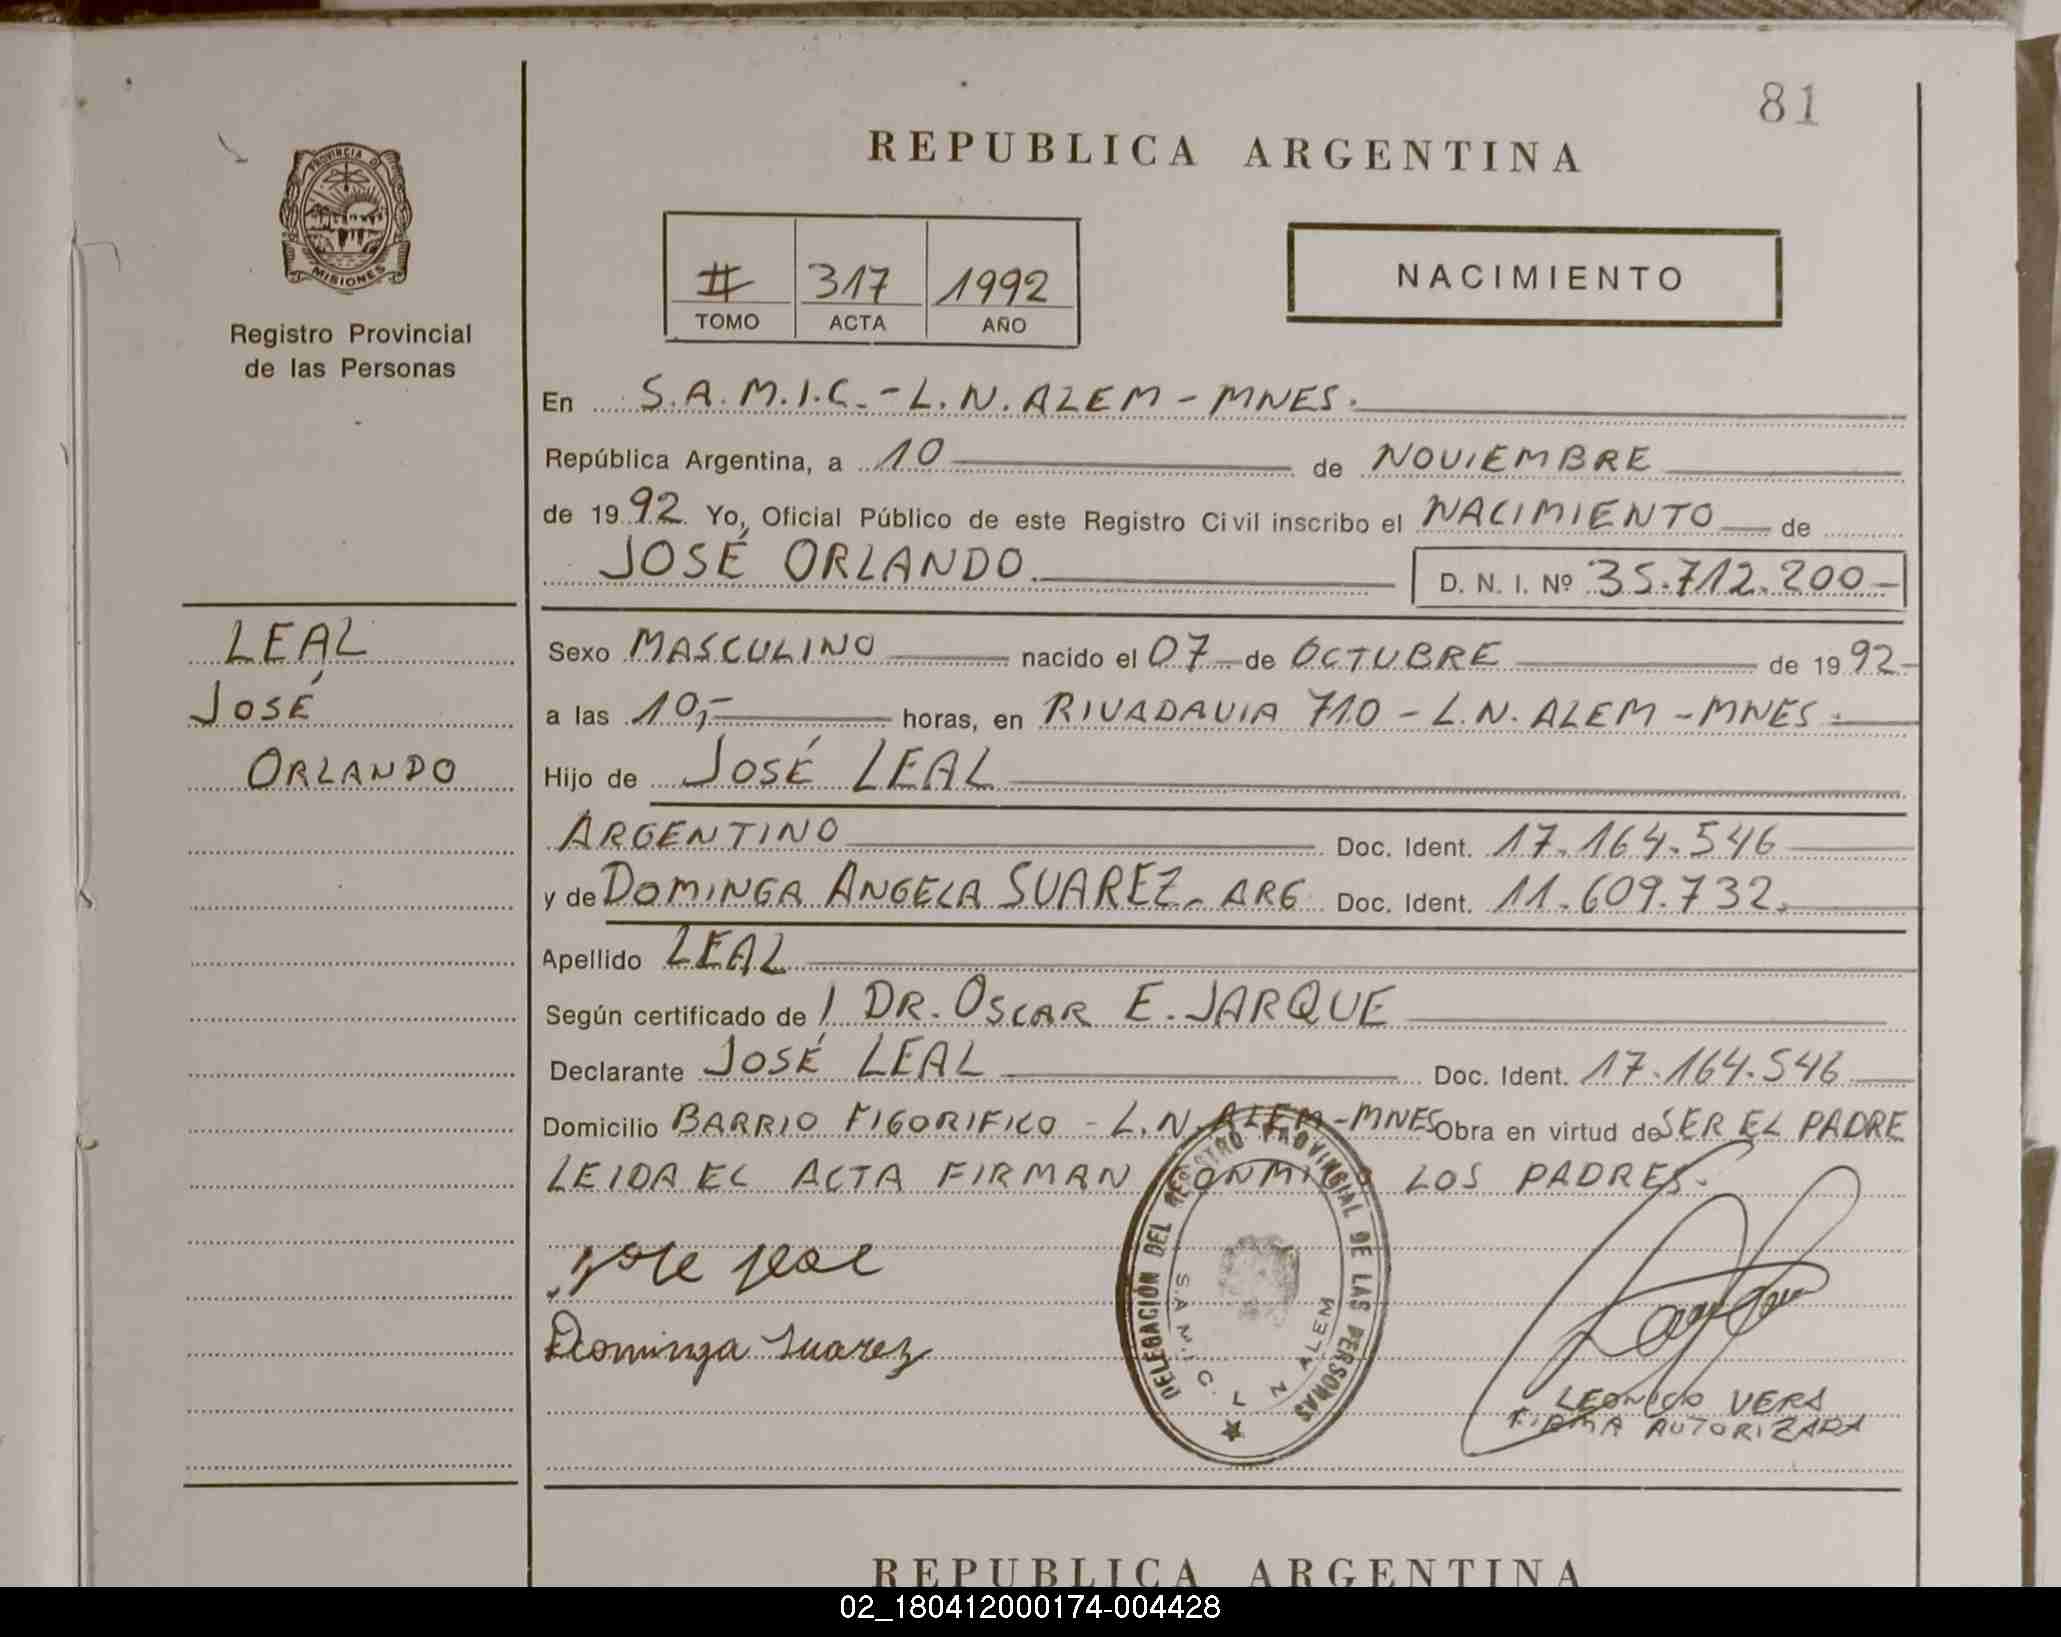 81
REPUBLICA ARGENTINA
PROVINCIA D
MISIONES
Registro Provincial
de las Personas
II 317 1992
TOMO ACTA AÑO
NACIMIENTO
En S.A.M.I.C. - L.N. ALEM - MNES.
República Argentina, a 10 de NOVIEMBRE
de 19 92 Yo, Oficial Público de este Registro Civil inscribo el NACIMIENTO de
JOSÉ ORLANDO D. N. I. Nº 35.712.200-
LEAL
JOSÉ
ORLANDO
Sexo MASCULINO nacido el 07 de OCTUBRE de 19 92-
a las 10,- horas, en RIVADAVIA 710 - L.N. ALEM - MNES.
Hijo de JOSÉ LEAL
ARGENTINO Doc. Ident. 17.164.546
y de DOMINGA ANGELA SUAREZ - ARG Doc. Ident. 11.609.732.
Apellido LEAL
Según certificado de / DR. OSCAR E. JARQUE
Declarante JOSÉ LEAL Doc. Ident. 17.164.546
Domicilio BARRIO FIGORIFICO - L.N. ALEM - MNES Obra en virtud de SER EL PADRE
LEIDA EL ACTA FIRMAN CONMIGO LOS PADRES.
Jose Leal
Dominga Suarez
DELEGACION DEL REGISTRO PROVINCIAL DE LAS PERSONAS
S.A.M.I.C. L N ALEM
LEONCIO VERA
FIRMA AUTORIZADA
REPUBLICA ARGENTINA
02_180412000174-004428